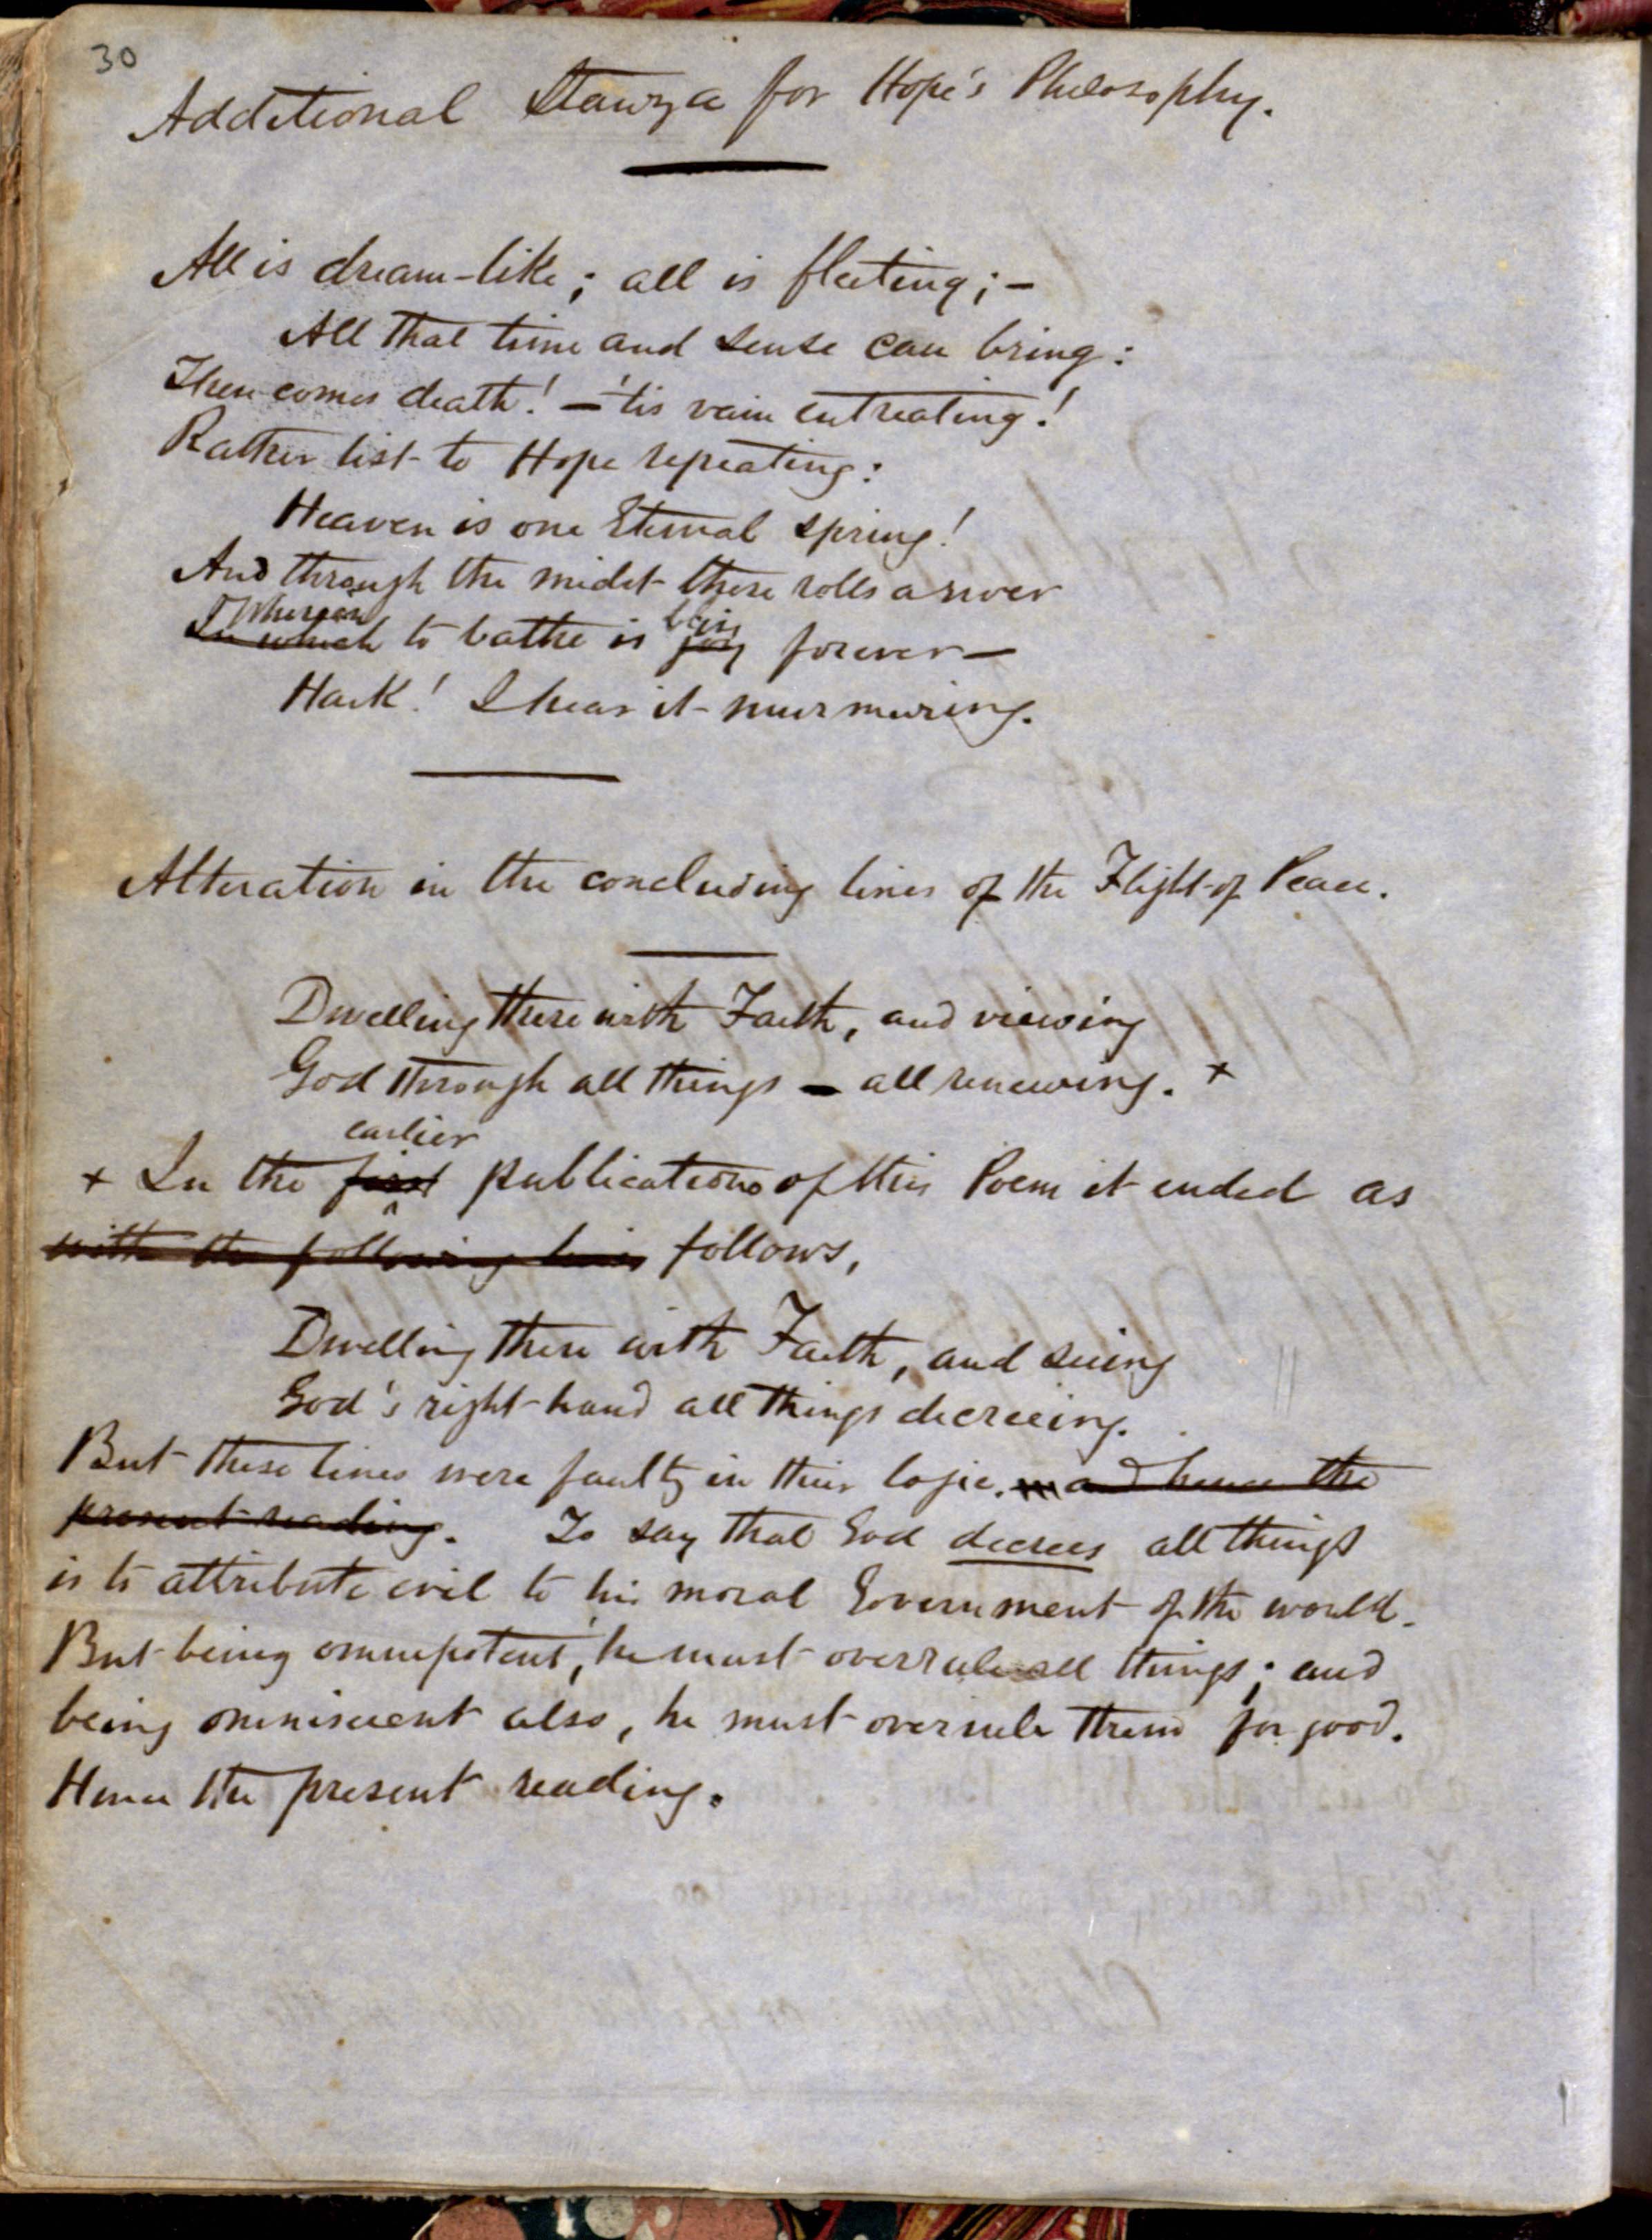 30
Additional Stanza for Hope's Philosophy.
All is dream-like; all is fleeting; -
All that time and sense can bring:
Then comes death! - 'tis vain entreating!
Rather list to Hope repeating:
Heaven is one Eternal spring!
And through the midst there rolls a river
Wherein bliss
In which to bathe is joy forever -
Hark! I hear it murmuring.
Alteration in the concluding lines of the Flight of Peace.
Dwelling there with Faith, and viewing
God through all things - all renewing. +
earlier
+ In the first publications of this Poem it ended as
with the following lines follows,
Dwelling there with Faith, and seeing
God's right hand all things decreeing.
But these lines were faulty in their logic. and hence the
present reading. To say that God decrees all things
is to attribute evil to his moral Government of the world.
But being omnipotent, he must overrule all things; and
being omniscient also, he must overrule them for good.
Hence the present reading.